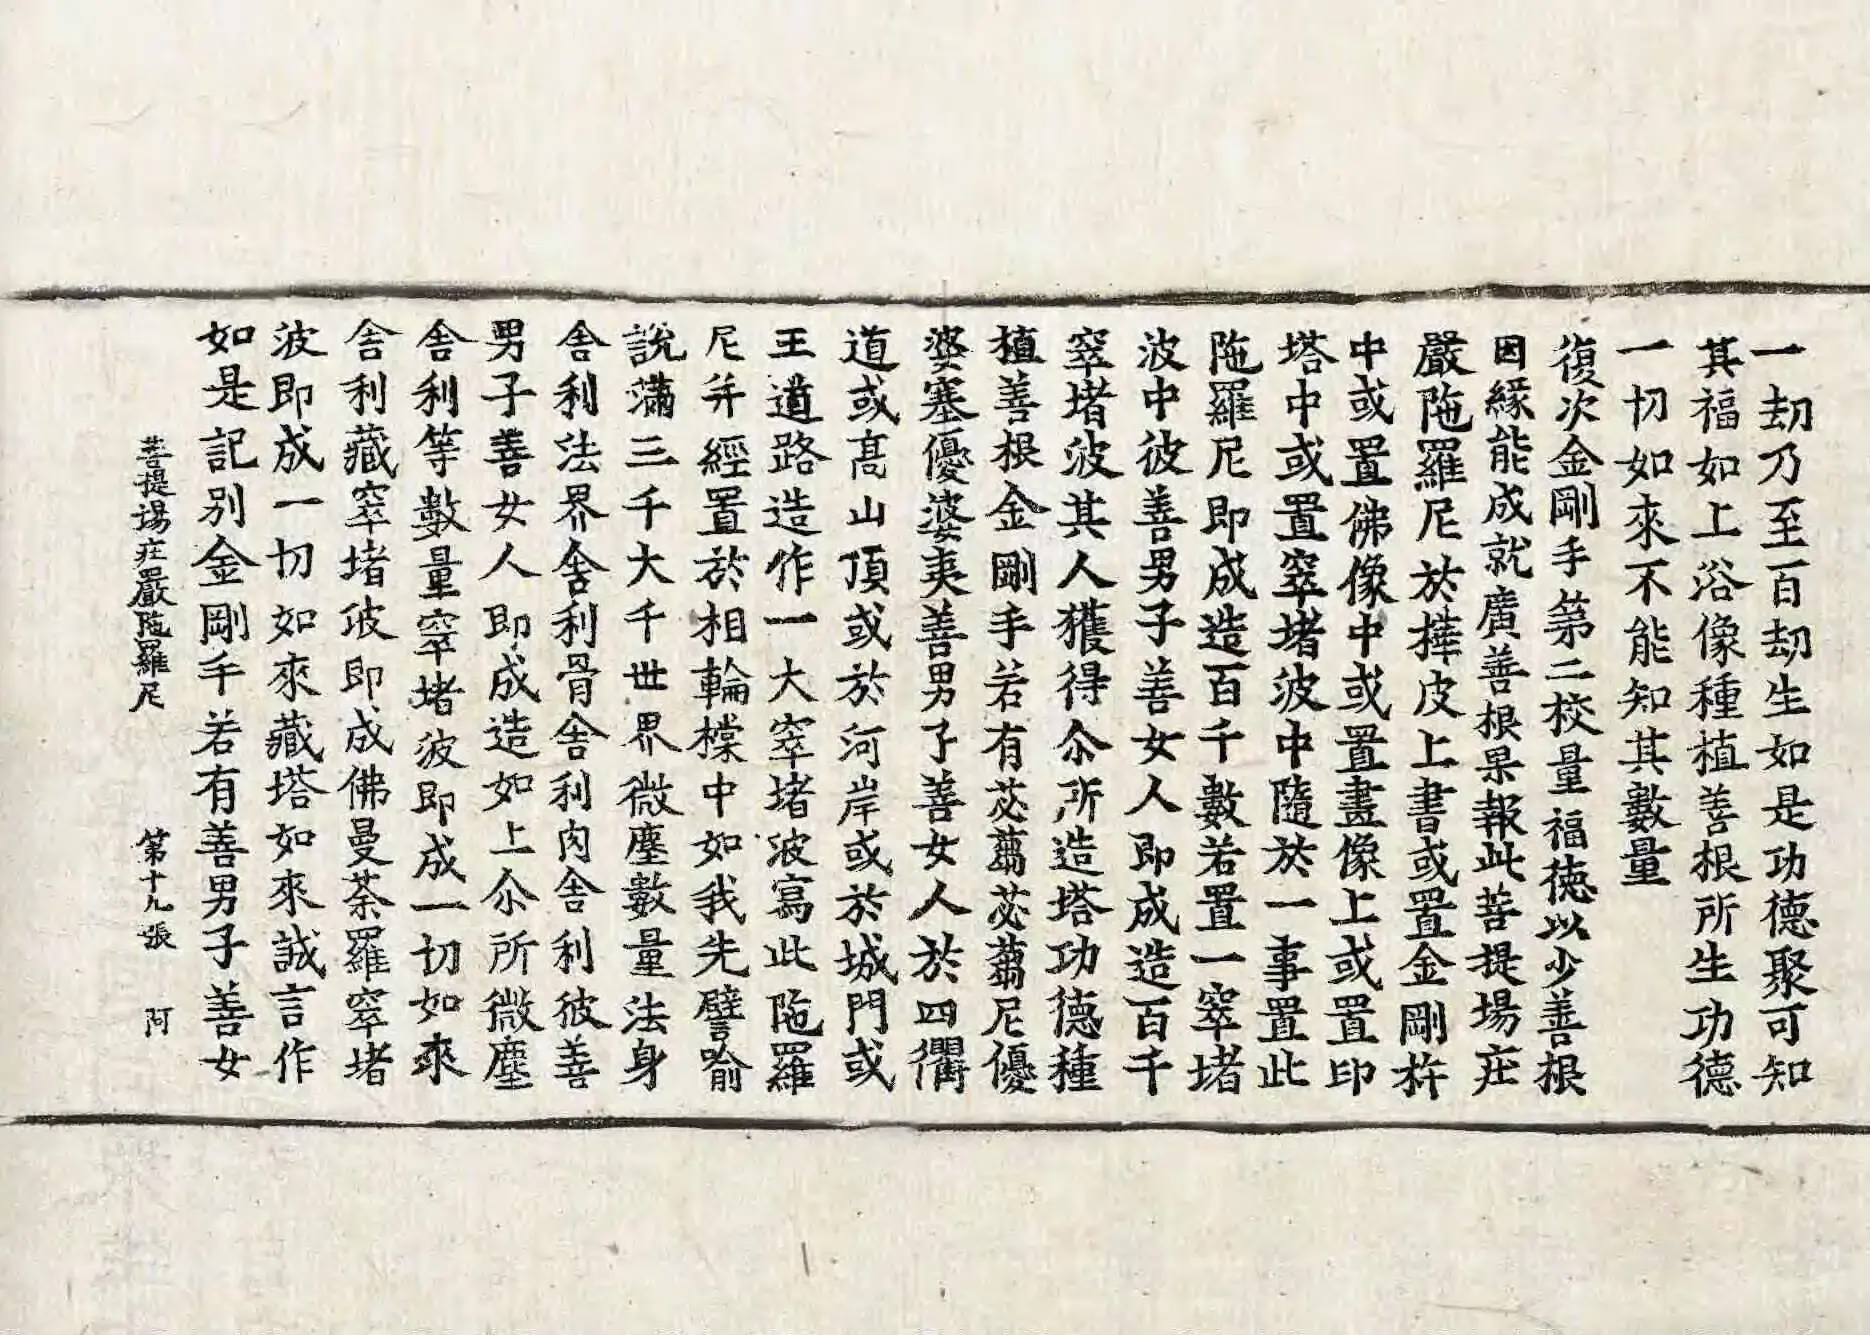 一劫乃至百劫生如是功德聚可知
其福如上浴像種植善根所生功德
一切如來不能知其數量
復次金剛手第二校量福德以少善根
因緣能成就廣善根果報此菩提場庄
嚴陁羅尼於樺皮上書或置金剛杵
中或置佛像中或置畫像上或置印
塔中或置窣堵波中隨於一事置此
陁羅尼即成造百千數若置一窣堵
波中彼善男子善女人即成造百千
窣堵波其人獲得尒所造塔功德種
植善根金剛手若有苾蒭苾蒭尼優
婆塞優婆夷善男子善女人於四衢
道或高山頂或於河岸或於城門或
王道路造作一大窣堵波寫此陁羅
尼并經置於相輪橖中如我先譬喻
說滿三千大千世界微塵數量法身
舍利法界舍利骨舍利肉舍利彼善
男子善女人即成造如上尒所微塵
舍利等數量窣堵波即成一切如來
舍利藏窣堵波即成佛曼荼羅窣堵
波即成一切如來藏塔如來誠言作
如是記別金剛手若有善男子善女
菩提場庄嚴陁羅尼 第十九張 阿